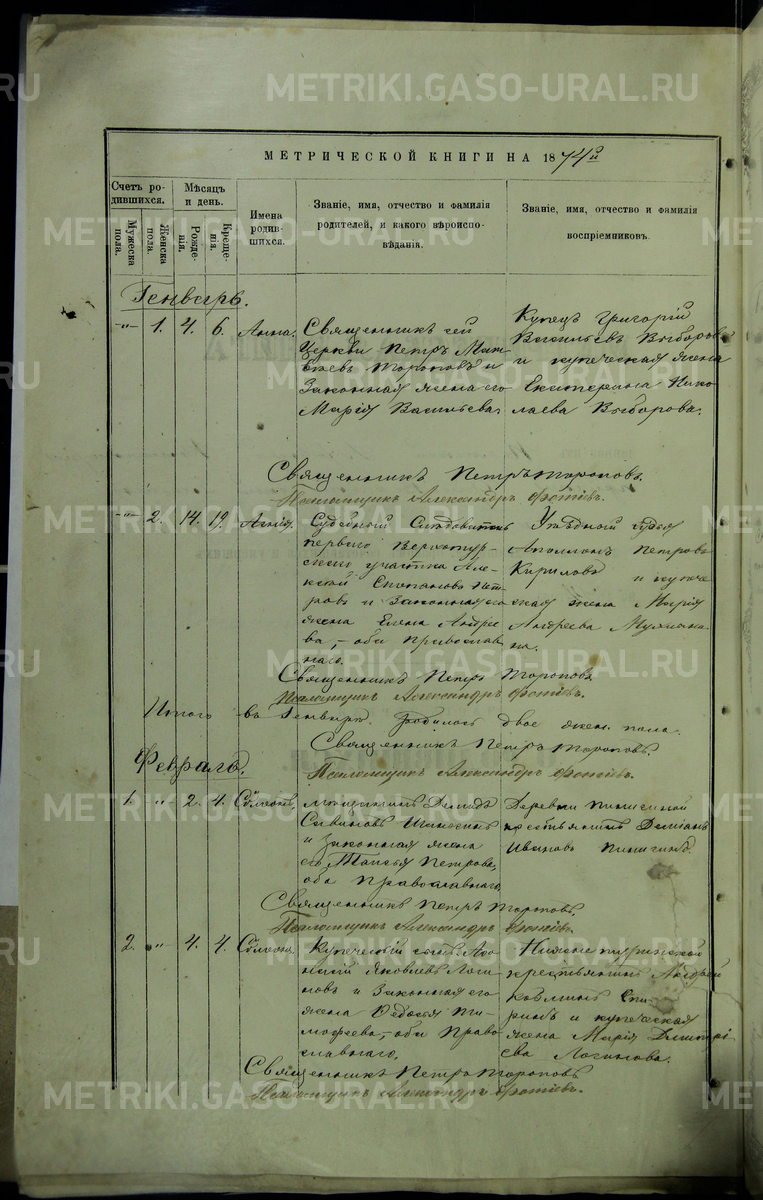 METRIKI.GASO-URAL.RU
МЕТРИЧЕСКОЙ КНИГИ НА 1874й
Счетъ ро-
дившихся.
Мужеска
пола.
Женска
пола.
Мѣсяцъ
и день.
Рожде-
нія.
Креще-
нія.
Имена
родив-
шихся.
Званіе, имя, отчество и фамилія
родителей, и какого вѣроиспо-
вѣданія.
Званіе, имя, отчество и фамилія
воспріемниковъ.
Генварь.
-"- 1. 4. 6. Анна.
Священникъ сей
Церкви Петръ Мат
ѳѣевъ Тороповъ и
Законная жена его
Марія Васильева
Купецъ Григорій
Васильевъ Выборовъ
и купеческая жена
Екатерина Нико
лаева Выборова.
Священникъ Петръ Тороповъ.
Псаломщикъ Александръ Фотіевъ.
-"- 2. 14. 19.
Судебный Слѣдователь
перваго Верхотур-
скаго участка Але-
ксѣй Степановъ Пет
ровъ и Законная его
жена Елена Андрее
ва, - оба православ
наго.
Уѣздный судья
Аполлонъ Петровъ
Кириловъ и купече
ская жена Марія
Андреева
на.
Священникъ Петръ Тороповъ
Псаломщикъ Александръ Фотіевъ.
Итого въ Генварѣ родилось двое жен. пола.
Священникъ Петръ Тороповъ.
Псаломщикъ Александръ Фотіевъ.
Февраль.
1. " 2. 4. Сѵмеонъ,
Демидъ
Савиновъ
и Законная жена
его Таисья Петрова,
оба православнаго,
Деревни
крестьянинъ Даміанъ
Ивановъ
Священникъ Петръ Тороповъ,
Псаломщикъ Александръ Фотіевъ.
2. " 4. 4.
Купеческій сынъ Аѳо
насій Яковлевъ Логи
новъ и Законная его
жена Ѳедосья Ти-
мофеева, - оба право
славнаго,
крестьянинъ Андрей
и купеческая
жена Марія Дмитрі
ева Логинова.
Священникъ Петръ Тороповъ
Псаломщикъ Александръ Фотіевъ.